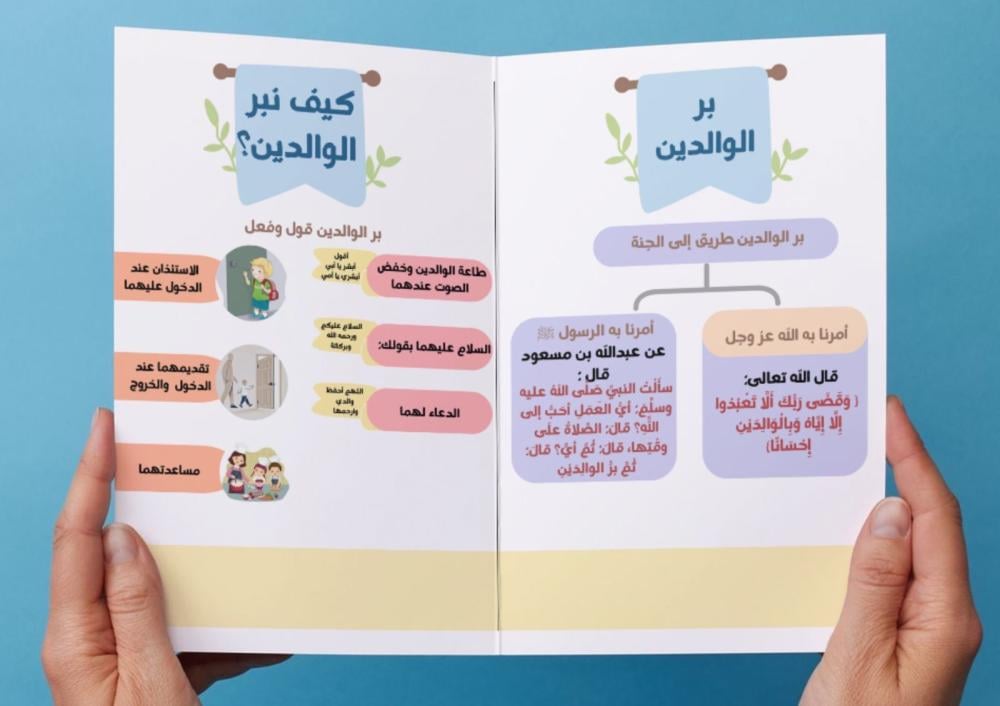 بر
الوالدين
بر الوالدين طريق إلى الجنة
أمرنا به الله عز وجل
قال الله تعالى:
( وَقَضَى رَبُّكَ أَلَّا تَعْبُدُوا
إِلَّا إِيَّاهُ وَبِالْوَالِدَيْنِ
إِحْسَانًا)
أمرنا به الرسول ﷺ
عن عبدالله بن مسعود
قال :
سألْتُ النبيَّ صَلَّى اللهُ عليه
وسلَّمَ: أيُّ العَمَلِ أحَبُّ إلى
اللَّهِ؟ قالَ: الصَّلاةُ علَى
وقْتِها، قالَ: ثُمَّ أيٌّ؟ قالَ:
ثُمَّ برُّ الوالِدَيْنِ
كيف نبر
الوالدين؟
بر الوالدين قول وفعل
طاعة الوالدين وخفض
الصوت عندهما
أقول
أبشر يا أبي
أبشري يا أمي
السلام عليهما بقولك:
السلام عليكم
ورحمه الله
وبركاتة
الدعاء لهما
اللهم أحفظ
والدي
وارحمها
الاستئذان عند
الدخول عليهما
تقديمهما عند
الدخول والخروج
مساعدتهما